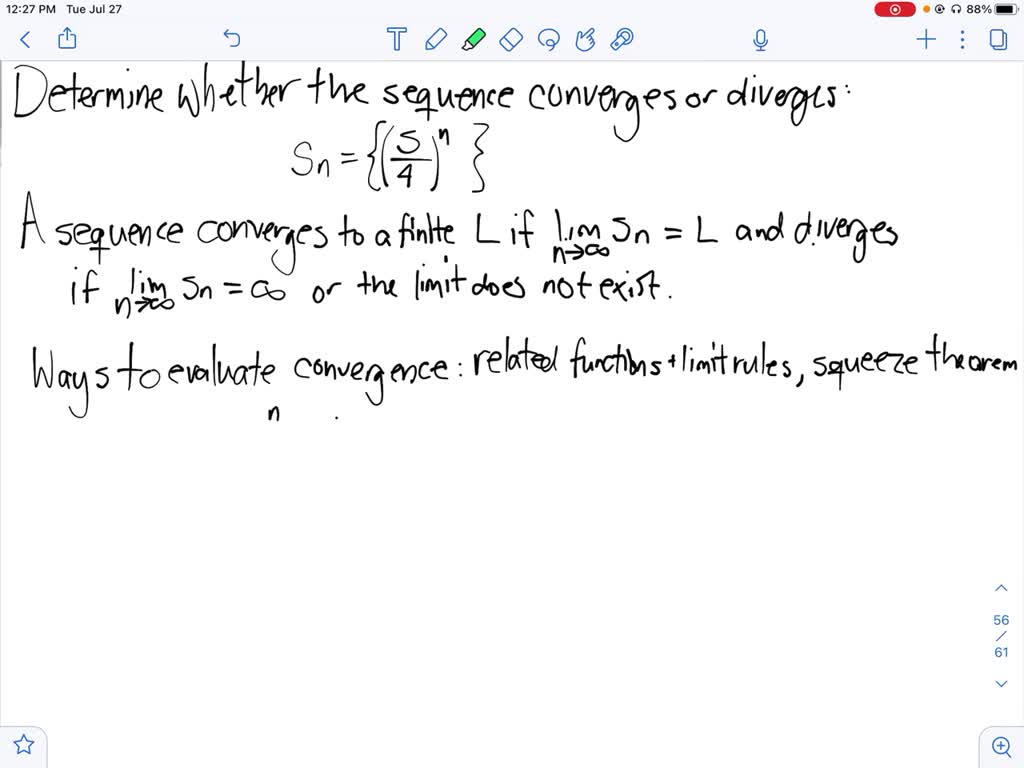 12:27 PM Tue Jul 27 88%
Determine whether the sequence converges or diverges:
Sn = {(5/4)^n}
A sequence converges to a finite L if lim n→∞ Sn = L and diverges
if lim n→∞ Sn = ∞ or the limit does not exist.
Ways to evaluate convergence: related functions + limit rules, squeeze theorem
n
56
/
61